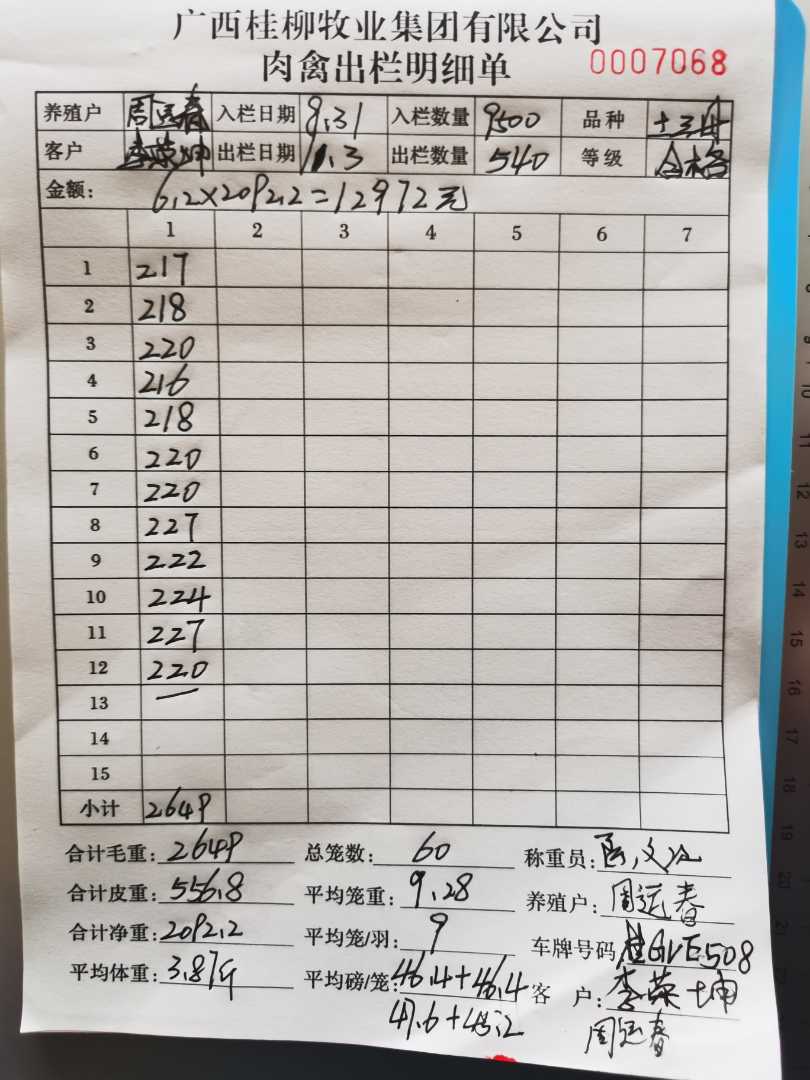 广西桂柳牧业集团有限公司
肉禽出栏明细单 0007068
养殖户 周运春 入栏日期 8.31 入栏数量 9500 品种
客户 李荣坤 出栏日期 11.3 出栏数量 540 等级 合格
金额: 6.2×2092.2=12972元
1 2 3 4 5 6 7
1 217
2 218
3 220
4 216
5 218
6 220
7 220
8 227
9 222
10 224
11 227
12 220
13 —
14
15
小计 2649
合计毛重: 2649 总笼数: 60 称重员:
合计皮重: 556.8 平均笼重: 9.28 养殖户: 周运春
合计净重: 2092.2 平均笼/羽: 9 车牌号码 桂GVE508
平均体重: 3.87斤 平均磅/笼: 46.4+46.4 客 户: 李荣坤
47.6+45.2 周运春